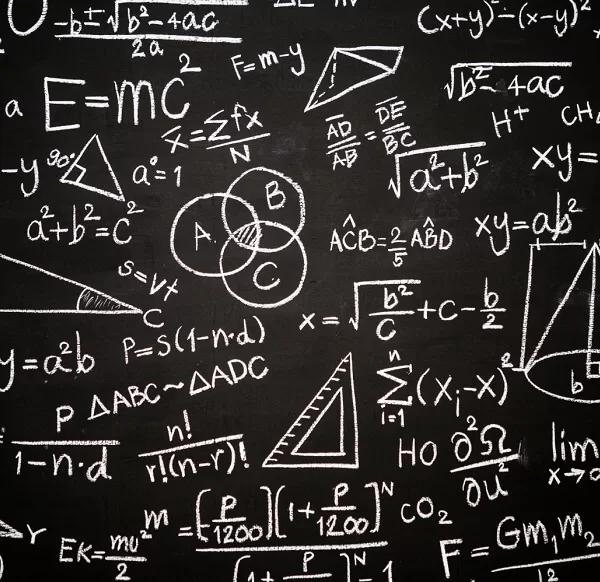 -b±√b²-4ac
2a
(x+y)²-(x-y)²
F=m-y
√b²-4ac
a E=mc²
x̄=∑fx
N
AD/AB = DE/BC
H⁺ CH₄
-y 90° a°=1
√a²+b²
xy=
a²+b²=c²
A B C
AĈB=2/5 AB̂D
xy=ab²
s=vt
C
x=√b²/C+C-b/2
y=a²b
P=S(1-n·d)
ΔABC~ΔADC
n
∑(Xᵢ-X)²
i=1
b
P
1-n·d
n!
r!(n-r)!
HO ∂²Ω
∂u²
lim
x→0
r
EK=mv²
2
m =[P/1200](1+P/1200)ᴺ
(1+P)ᴺ-1
CO₂
F=Gm₁m₂